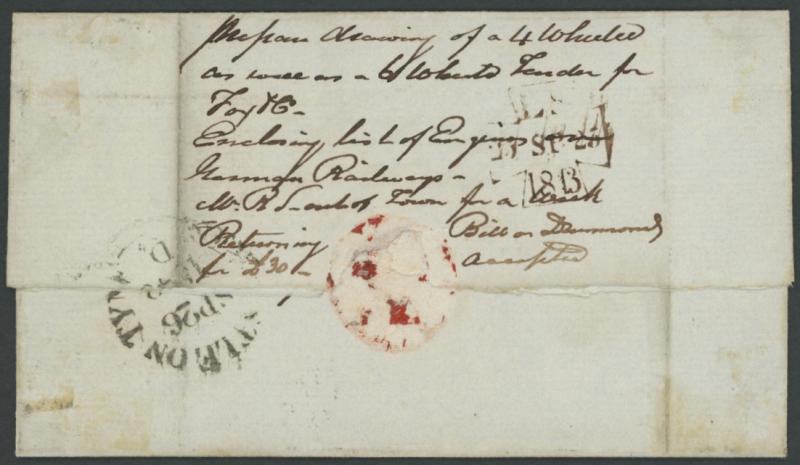 Prepare drawing of a 4 Wheeled
as well as a 6 Wheeled Tender for
Fox & Co -
Enclosing list of Engines on
German Railways -
Mr. R S - out of Town for a Week
Returning Bill on Drummond
for £30 - accepted
SP 25
1843
SP 26
TLE ON TYN